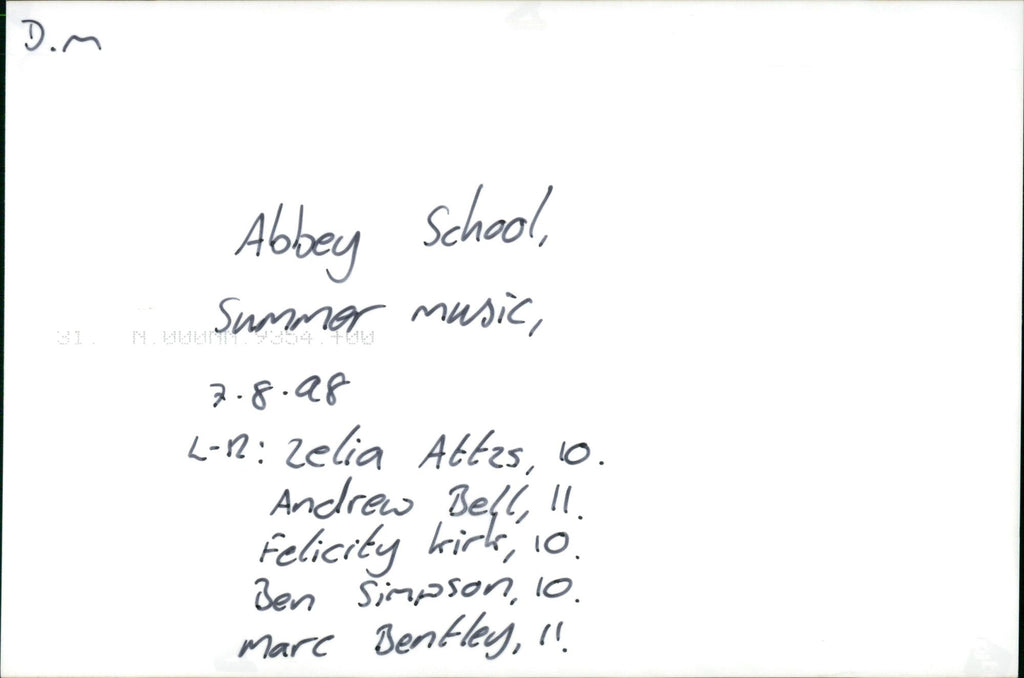 D.M
Abbey School,
Summer music,
31. N.000NN.9354.+00
7.8.98
L-R: Zelia Attzs, 10.
Andrew Bell, 11.
Felicity Kirk, 10.
Ben Simpson, 10.
Marc Bentley, 11.